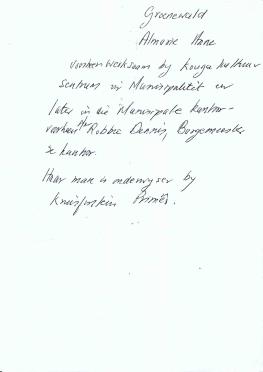 Groenewald
Almarie Hane
voorheen werksaam by Kouga kultuur
sentrum vir Munisipaliteit en
later in die Munisipale kantor-
voorheen Mr Robbie Dennis, Burgemeester
se kantor.
Haar man is onderwyser by
Primêr.